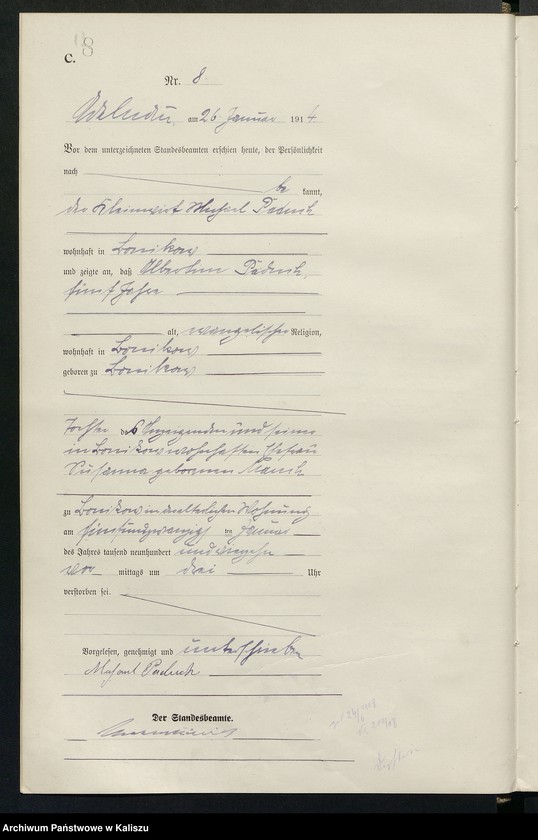 18
C.
Nr. 8.
Adelnau, am 26 Januar 1914
Vor dem unterzeichneten Standesbeamten erschien heute, der Persönlichkeit
nach be kannt,
der Kleinwirt
wohnhaft in Bonikow
und zeigte an, daß
fünf Jahre
alt, evangelischer Religion,
wohnhaft in Bonikow
geboren zu Bonikow
Tochter des Anzeigenden und seiner
in Bonikow wohnhaften Ehefrau
Susanna geborenen
zu Bonikow in der elterlichen Wohnung
am fünfundzwanzig ten Januar
des Jahres tausend neunhundert und vierzehn
vor mittags um drei Uhr
verstorben sei.
Vorgelesen, genehmigt und unterschrieben
Der Standesbeamte.
Archiwum Państwowe w Kaliszu